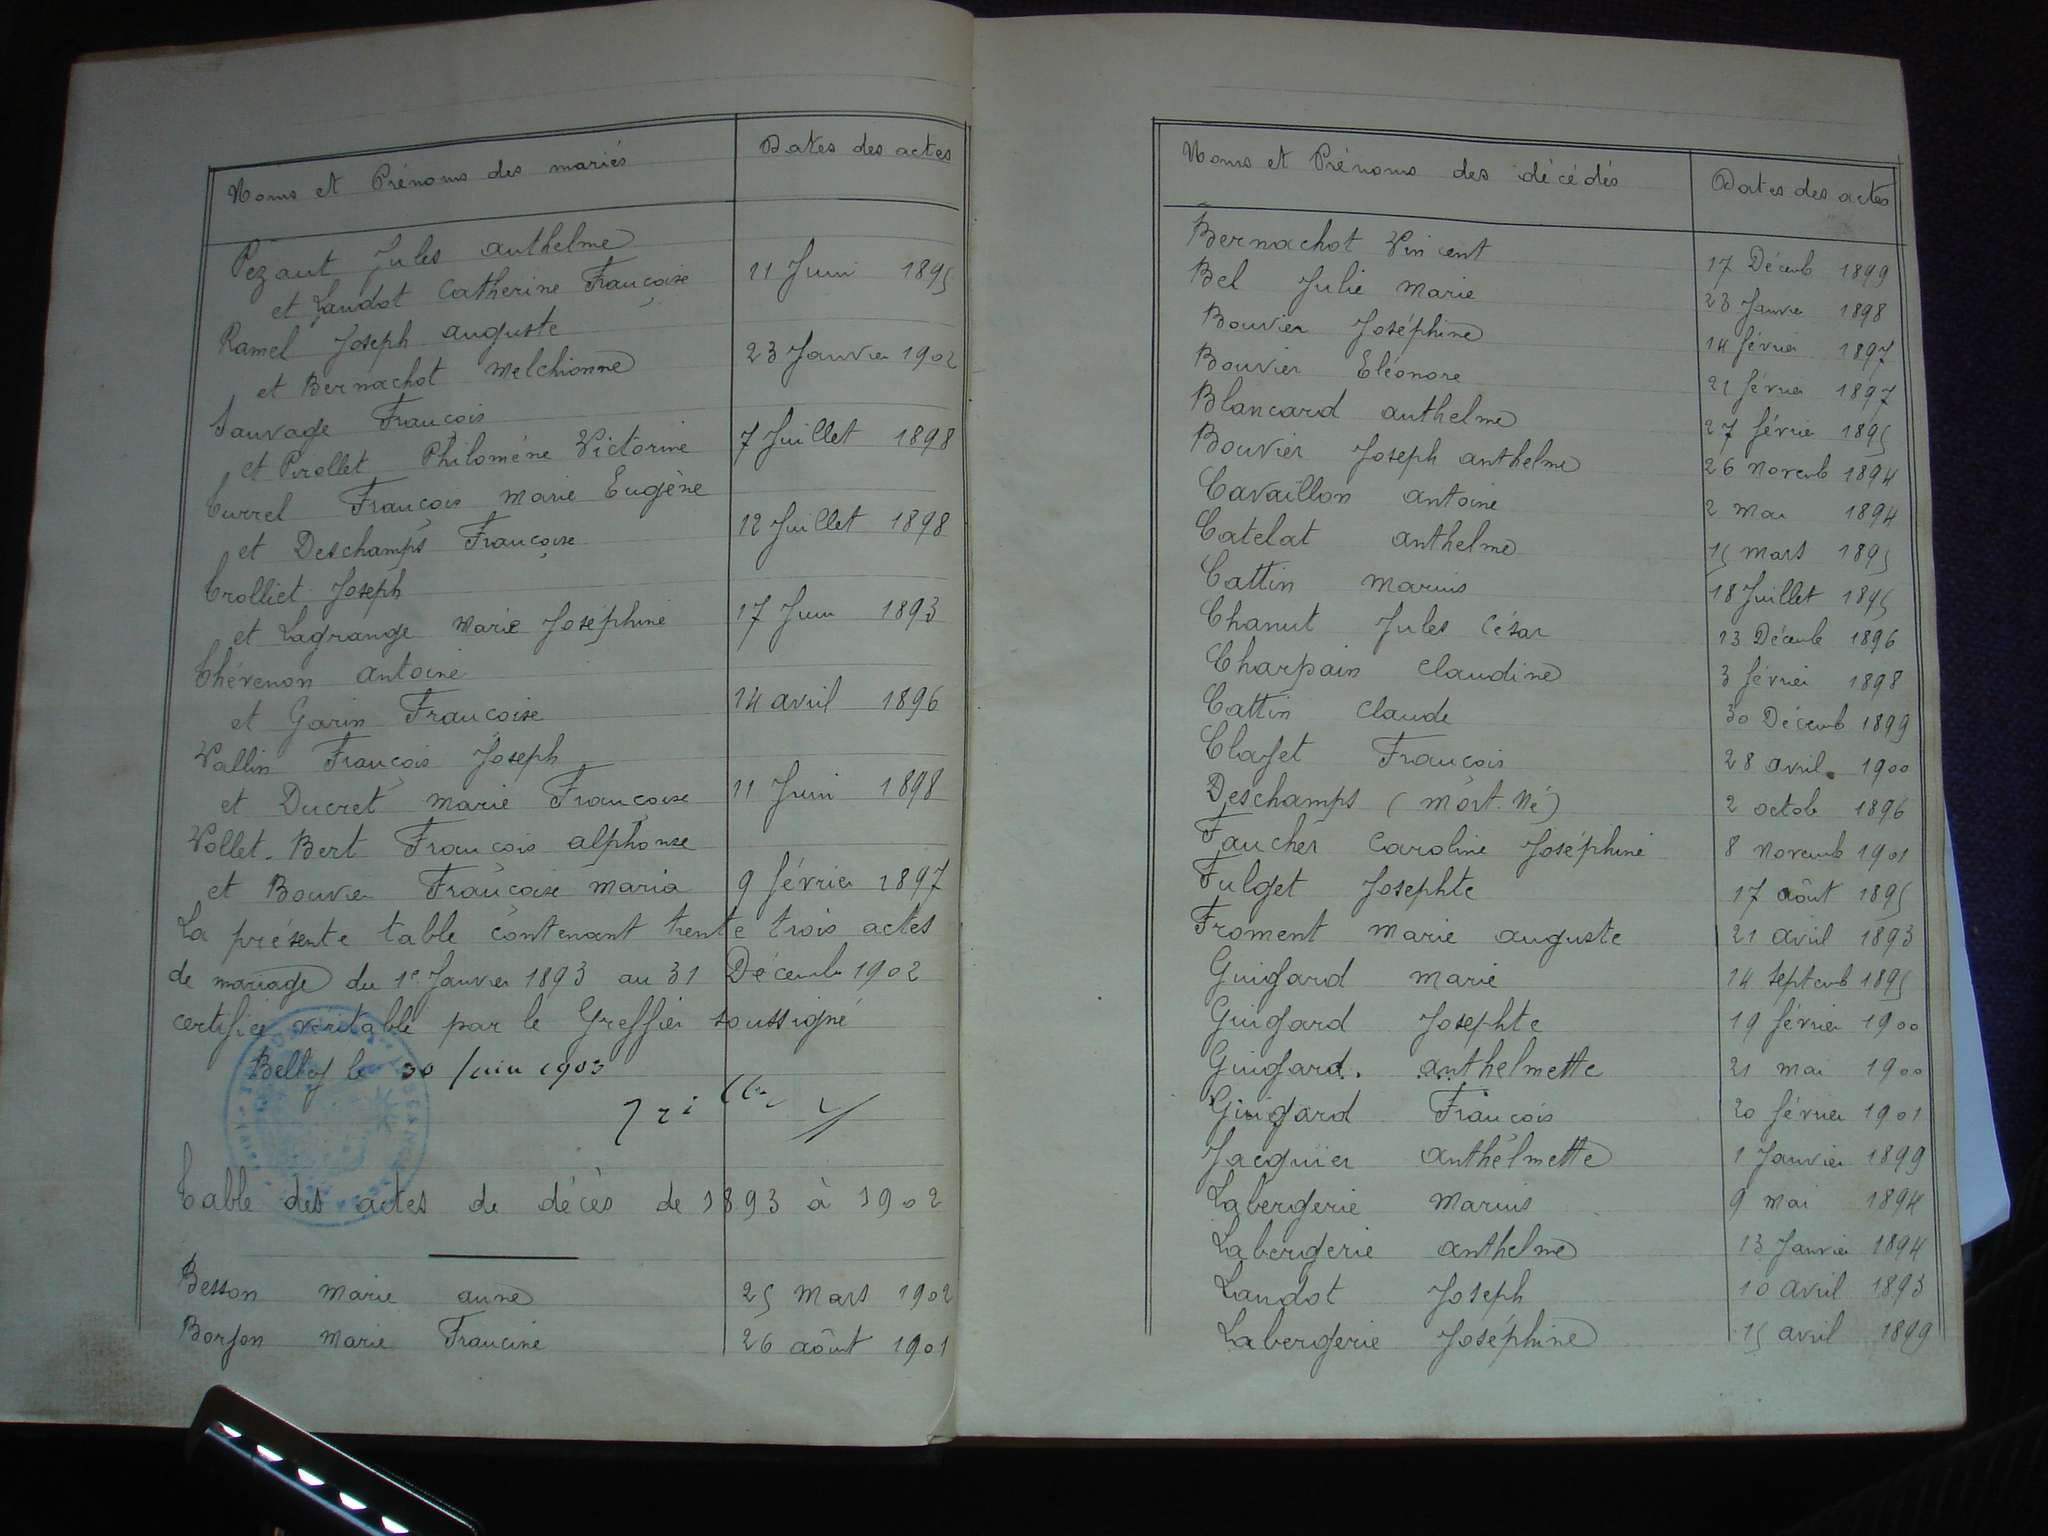 Noms et Prénoms des mariés Dates des actes
Pezant Jules anthelme
et Landot Catherine Françoise 21 Juin 1895
Ramel Joseph auguste
et Bernachot Melchionne 23 Janvier 1902
Sauvage François
et Pirollet Philomène Victorine 7 Juillet 1898
Currel François Marie Eugène
et Deschamps Françoise 12 Juillet 1898
Trolliet Joseph
et Lagrange Marie Joséphine 17 Juin 1893
Thévenon antoine
et Garin Françoise 14 avril 1896
Vallin François Joseph
et Ducret Marie Françoise 11 Juin 1898
Vollet-Bert François alphonse
et Bouvier Françoise Maria 9 février 1897
La présente table contenant trente trois actes
de mariage du 1er Janvier 1893 au 31 Décemb 1902
certifiée véritable par le Greffier soussigné
Belley le 30 Juin 1903
Table des actes de décès de 1893 à 1902
Besson Marie anne 25 Mars 1902
Borjon Marie Francine 26 août 1901
Noms et Prénoms des décédés Dates des actes
Bernachot Vincent 17 Décemb 1899
Bel Julie Marie 23 Janvier 1898
Bouvier Joséphine 14 février 1897
Bouvier Eléonore 21 février 1897
Blancard anthelme 27 février 1895
Bouvier Joseph anthelme 26 Novemb 1894
Cavaillon antoine 2 Mai 1894
Catelat anthelme 15 Mars 1895
Cattin Marius 18 Juillet 1895
Chanut Jules César 13 Décemb 1896
Charpain Claudine 3 février 1898
Cattin Claude 30 Décemb 1899
Clajet François 28 avril 1900
Deschamps (Mort-Né) 2 octob 1896
Faucher Caroline Joséphine 8 Novemb 1901
Fulget Josephte 17 août 1895
Froment Marie auguste 21 avril 1893
Guigard Marie 14 septemb 1895
Guigard Josephte 19 février 1900
Guigard anthelmette 21 mai 1900
Guigard François 20 février 1901
Jacquier anthelmette 1 Janvier 1899
Labergerie Marius 9 mai 1894
Labergerie anthelme 13 Janvier 1894
Landot Joseph 10 avril 1893
Labergerie Joséphine 15 avril 1899